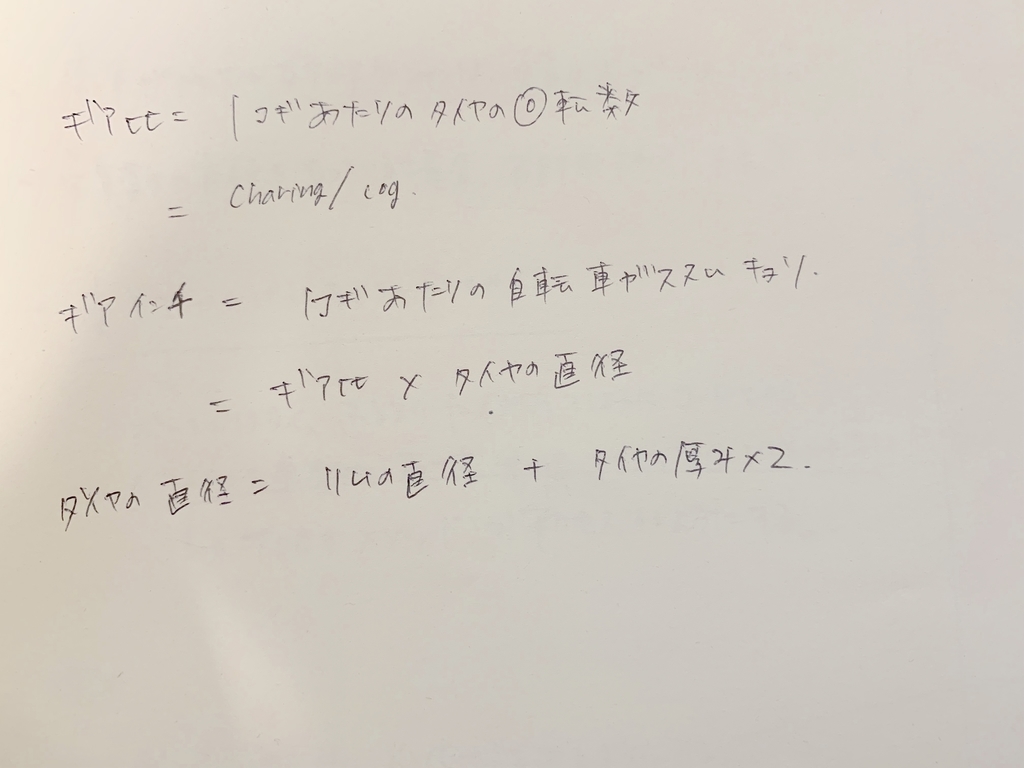 ギア比 = 1コギあたりのタイヤの回転数
= Charing/cog.
ギアインチ = 1コギあたりの自転車がススムキョリ.
= ギア比 × タイヤの直径
タイヤの直径 = リムの直径 + タイヤの厚み×2.